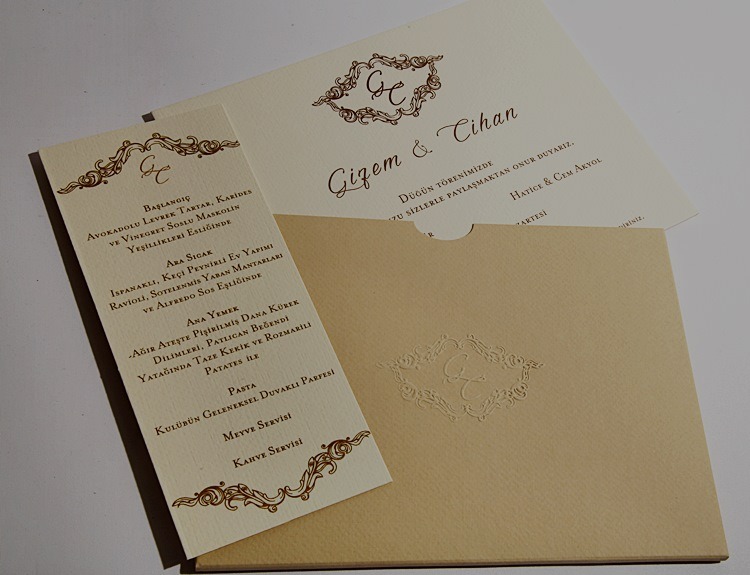 GC
Başlangıç
Avokadolu Levrek Tartar, Karides
ve Vinegret Soslu Maskolin
Yeşillikleri Esliğinde
Ara Sıcak
Ispanaklı, Keçi Peynirli Ev Yapımı
Ravioli, Sotelenmis Yaban Mantarları
ve Alfredo Sos Eşliğinde
Ana Yemek
-Ağır Ateşte Pişirilmiş Dana Kürek
Dilimleri, Patlıcan Beğendi
Yatağında Taze Kekik ve Rozmarili
Patates ile
Pasta
Kulübün Geleneksel Duvaklı Parfesi
Meyve Servisi
Kahve Servisi
GC
Gizem & Cihan
Düğün törenimizde
sizlerle paylaşmaktan onur duyarız.
Hatice & Cem Akyol
GC